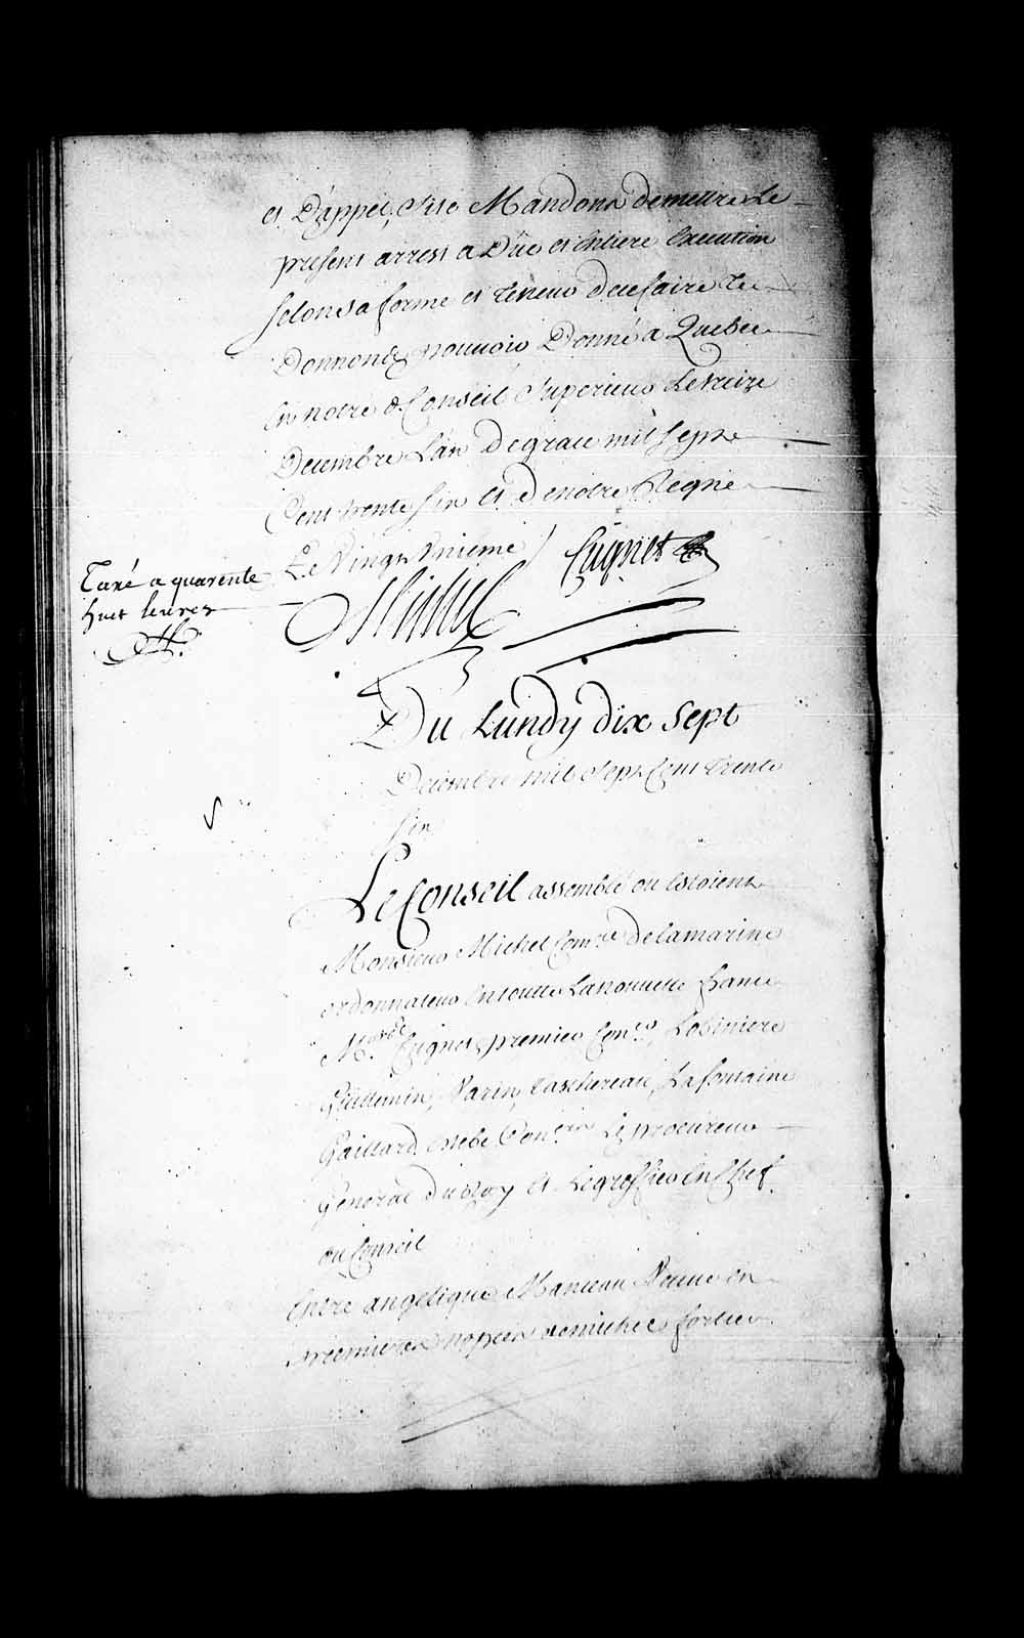 et D'appel, Sise Mandons de mettre Le
present arrest a Düe et Entiere Execution
selon sa forme et teneur de ce faire te
Donnons pouvoir Donné a Quebec
En notre Conseil Superieur Le treize
Decembre L'an de grace mil sept
Cent trente six et de notre Regne
Le Vingt Unieme /. Cugnet
Taxé a quarente
huit livres
Michel
Du Lundy dix Sept
Decembre mil Sept Cent trente
six
Le Conseil assemblé ou Estoient
Monsieur Michel Com.re de la marine
ordonnateur En toutte La nouvelle france
M.rs Cugnet premier Con.er, Lobiniere
Guillimin, Varin, taschereau, La fontaine
Gaillard, Estebe Con.ers Le procureur
General du Roy et Le greffier En Chef
du Conseil
Entre angelique Manseau Veuve en
premieres nopces de michel fortier